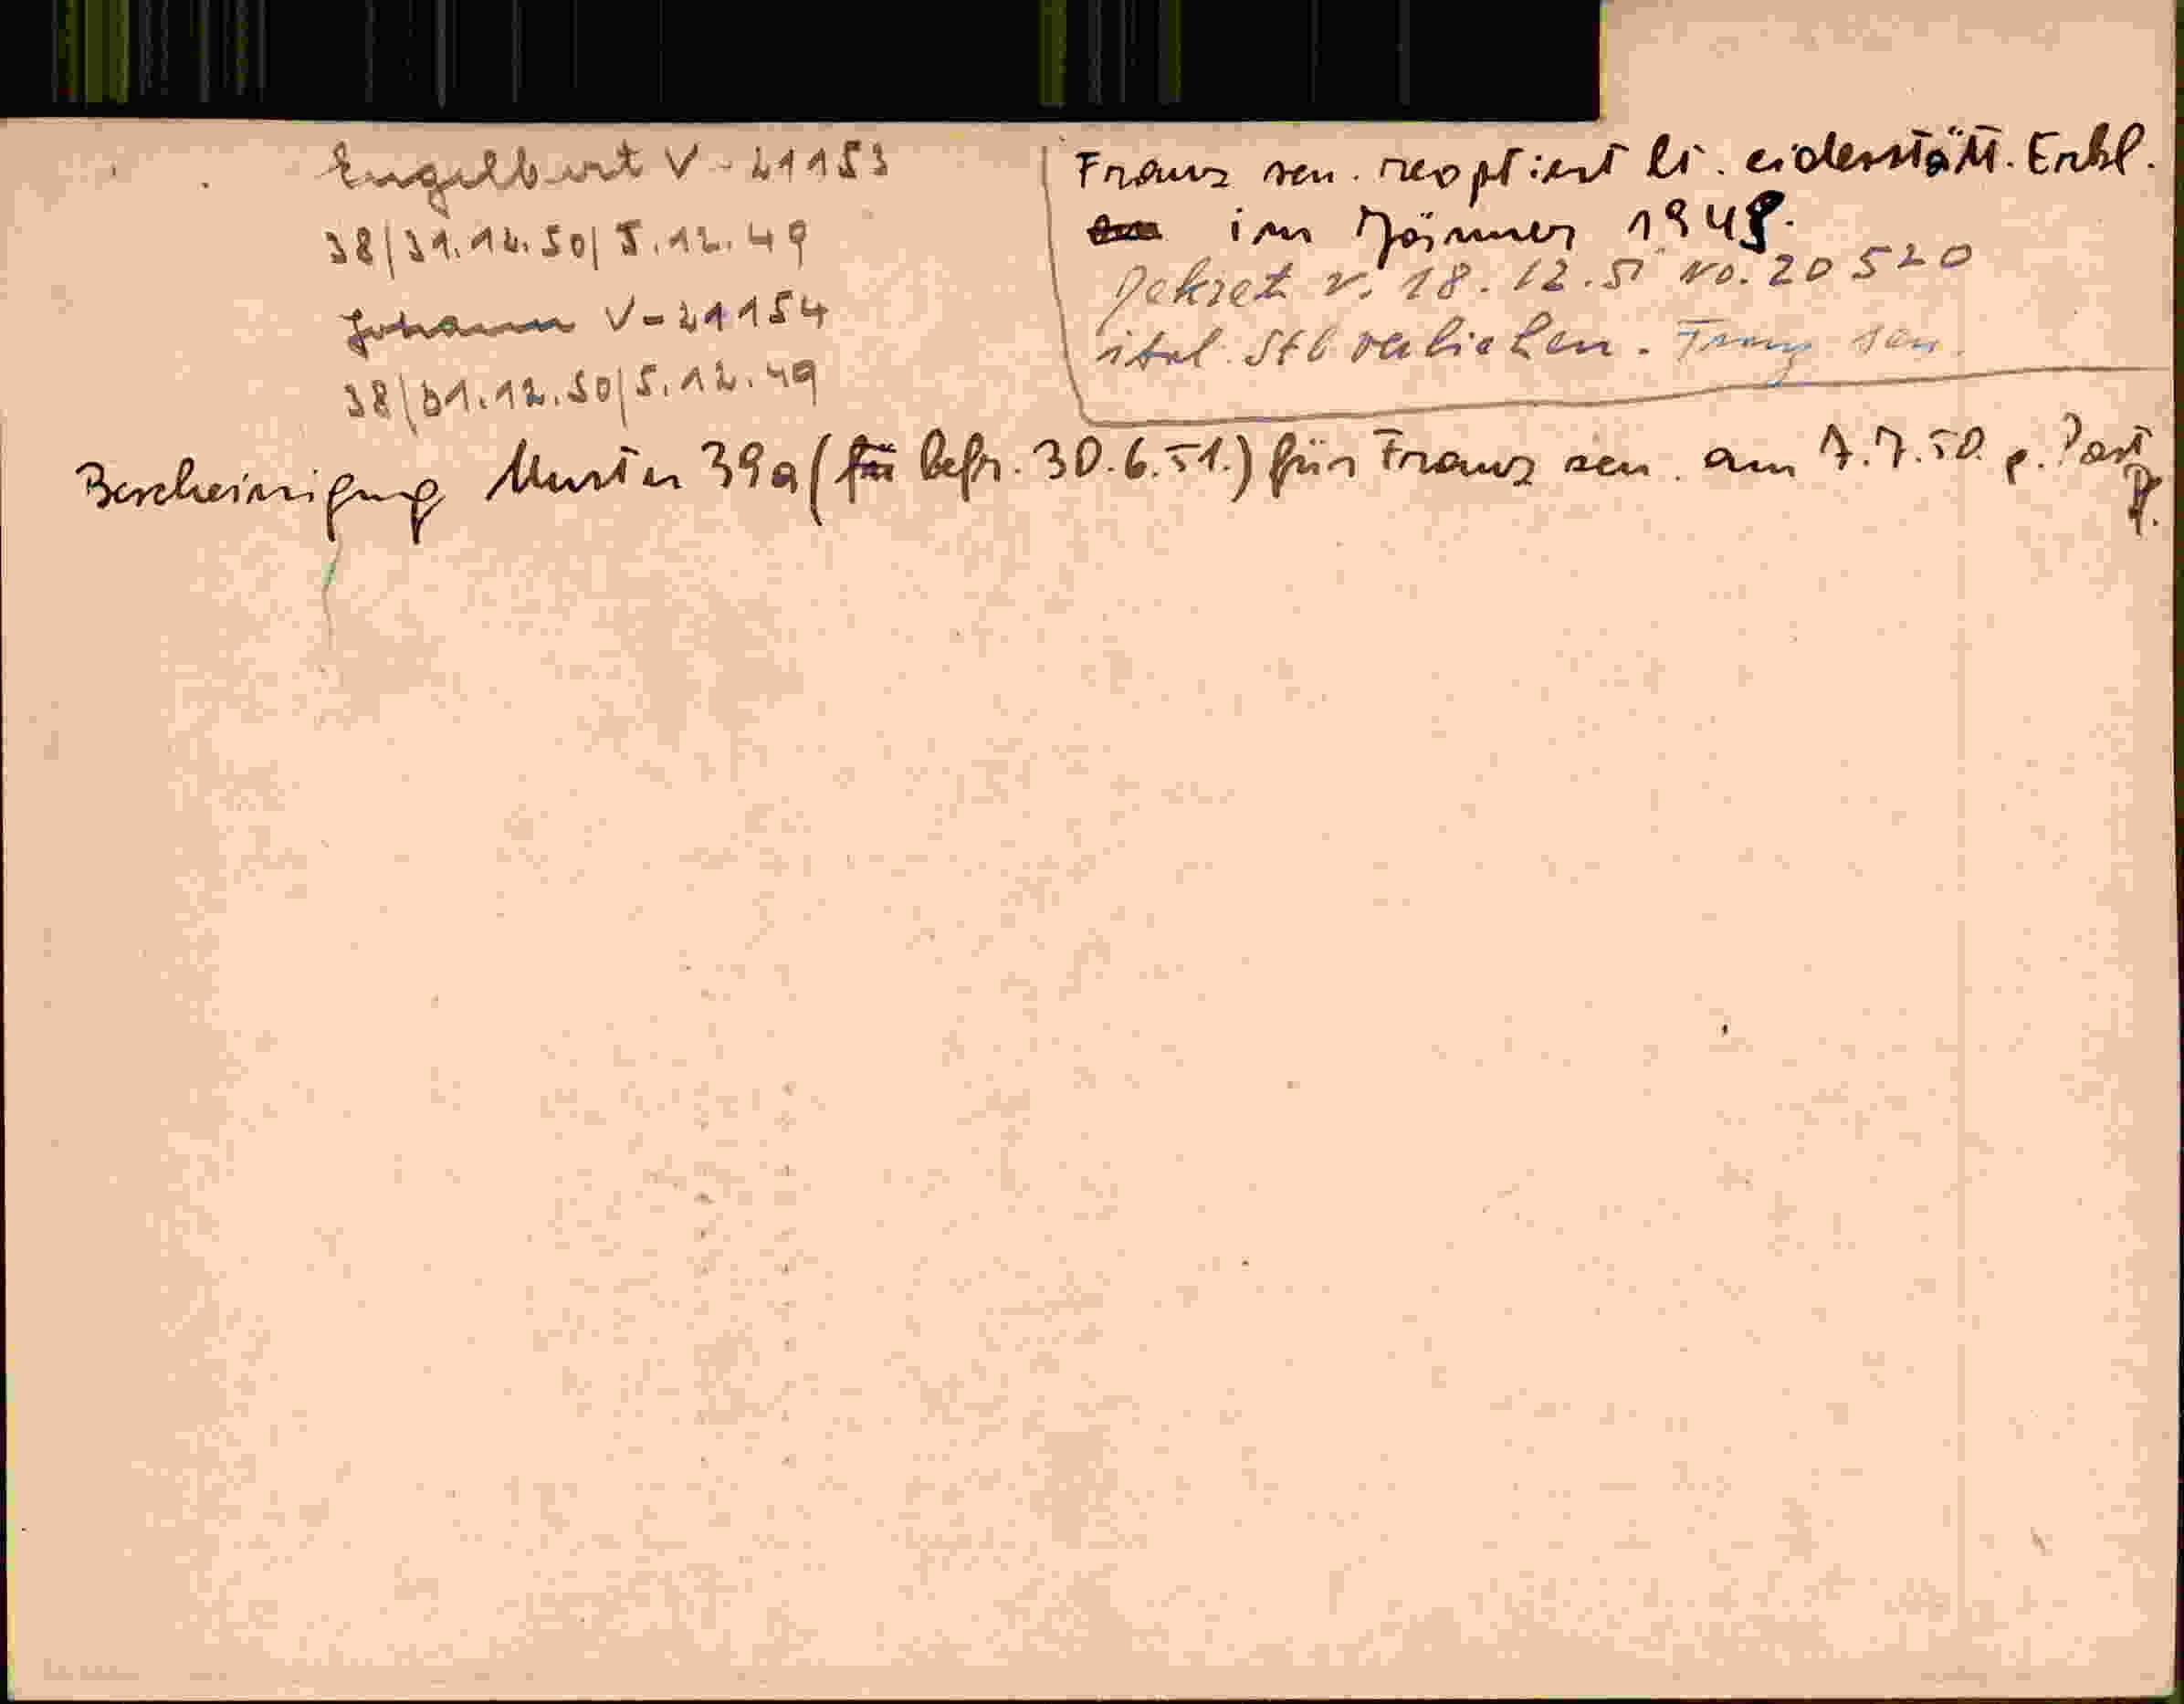 Engelbert V-21153
38/31.12.50/5.12.49
Johann V-21154
38/31.12.50/5.12.49
Franz sen. reoptiert lt. eidesstätt. Erkl.
im Jänner 1949.
Dekret v. 18.12.51 No. 20520
ital. Stb verliehen. Franz sen.
Bescheinigung Muster 39a (für befr. 30.6.51.) für Franz sen. am 7.7.50. p. Post